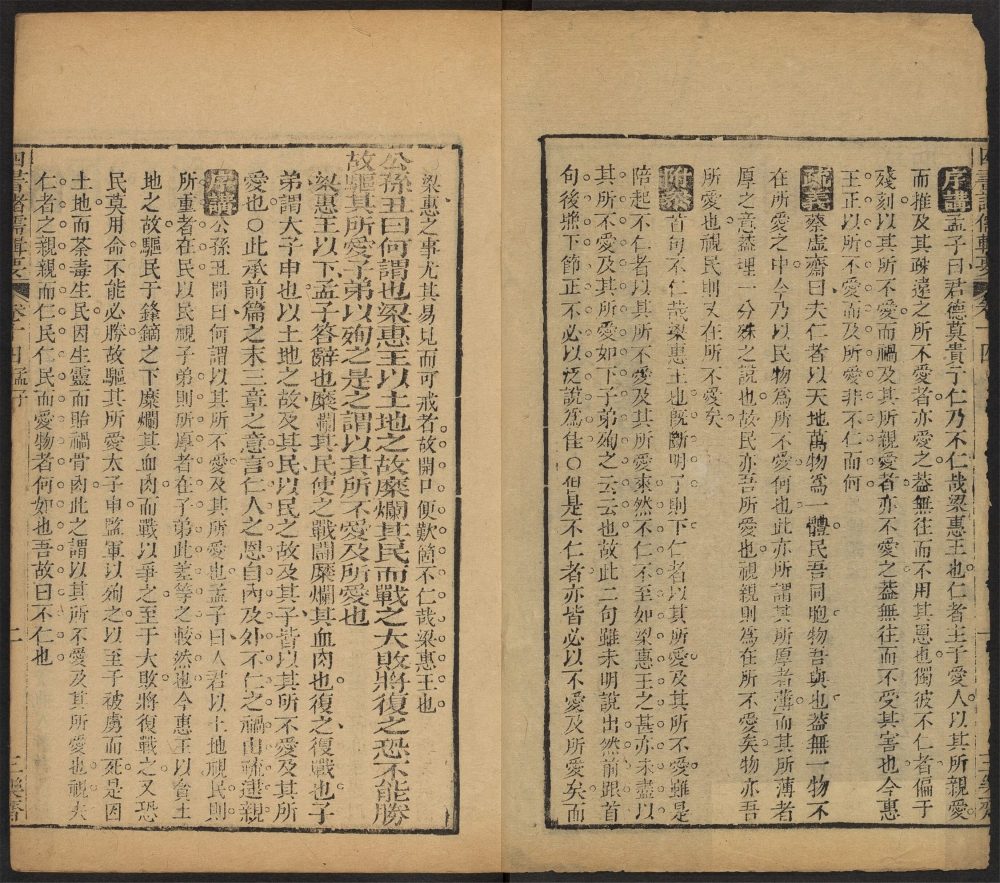 序講孟子曰君德莫貴于仁乃不仁哉梁惠王也仁者主于愛人以其所親愛
而推及其疎遠之所不愛者亦愛之葢無往而不用其恩也獨彼不仁者偏于
殘刻以其所不愛而禍及其所親愛者亦不愛之葢無往而不受其害也今惠
王正以所不愛而及所愛非不仁而何
疏義蔡虛齋曰夫仁者以天地萬物為一體民吾同胞物吾與也葢無一物不
在所愛之中今乃以民物為所不愛何也此亦所謂其所厚者薄而其所薄者
厚之意葢理一分殊之說也故民亦吾所愛也視親則為在所不愛矣物亦吾
所愛也視民則又在所不愛矣
附叅首句不仁哉梁惠王也旣斷明了則下仁者以其所愛及其所不愛雖是
陪起不仁者以其所不愛及其所愛來然不仁不至如梁惠王之甚亦未盡以
其所不愛及其所愛如下子弟殉之云云也故此二句雖未明說出然前跟首
句後㷊下節正不必以泛說為佳○但是不仁者亦皆必以不愛及所愛矣而
四書諸儒輯要 卷十四
梁惠之事尤其易見而可戒者故開口便歎箇不仁哉梁惠王也
公孫丑曰何謂也梁惠王以土地之故糜爛其民而戰之大敗將復之恐不能勝
故驅其所愛子弟以殉之是之謂以其所不愛及所愛也
梁惠王以下孟子答辭也糜爛其民使之戰鬬糜爛其血肉也復之復戰也子
弟謂太子申也以土地之故及其民以民之故及其子皆以其所不愛及其所
愛也○此承前篇之末三章之意言仁人之恩自內及外不仁之禍由疏逮親
序講公孫丑問曰何謂以其所不愛及其所愛也孟子曰人君以土地視民則
所重者在民以民視子弟則所厚者在子弟此差等之較然也今惠王以貪土
地之故驅民于鋒鏑之下糜爛其血肉而戰以爭之至于大敗將復戰之又恐
民莫用命不能必勝故驅其所愛太子申監軍以殉之以至于被虜而死是因
土地而荼毒生民因生靈而貽禍骨肉此之謂以其所不愛及其所愛也視夫
仁者之親親而仁民仁民而愛物者何如也吾故曰不仁也
四書諸儒輯要 卷十四孟子 二 三樂齋